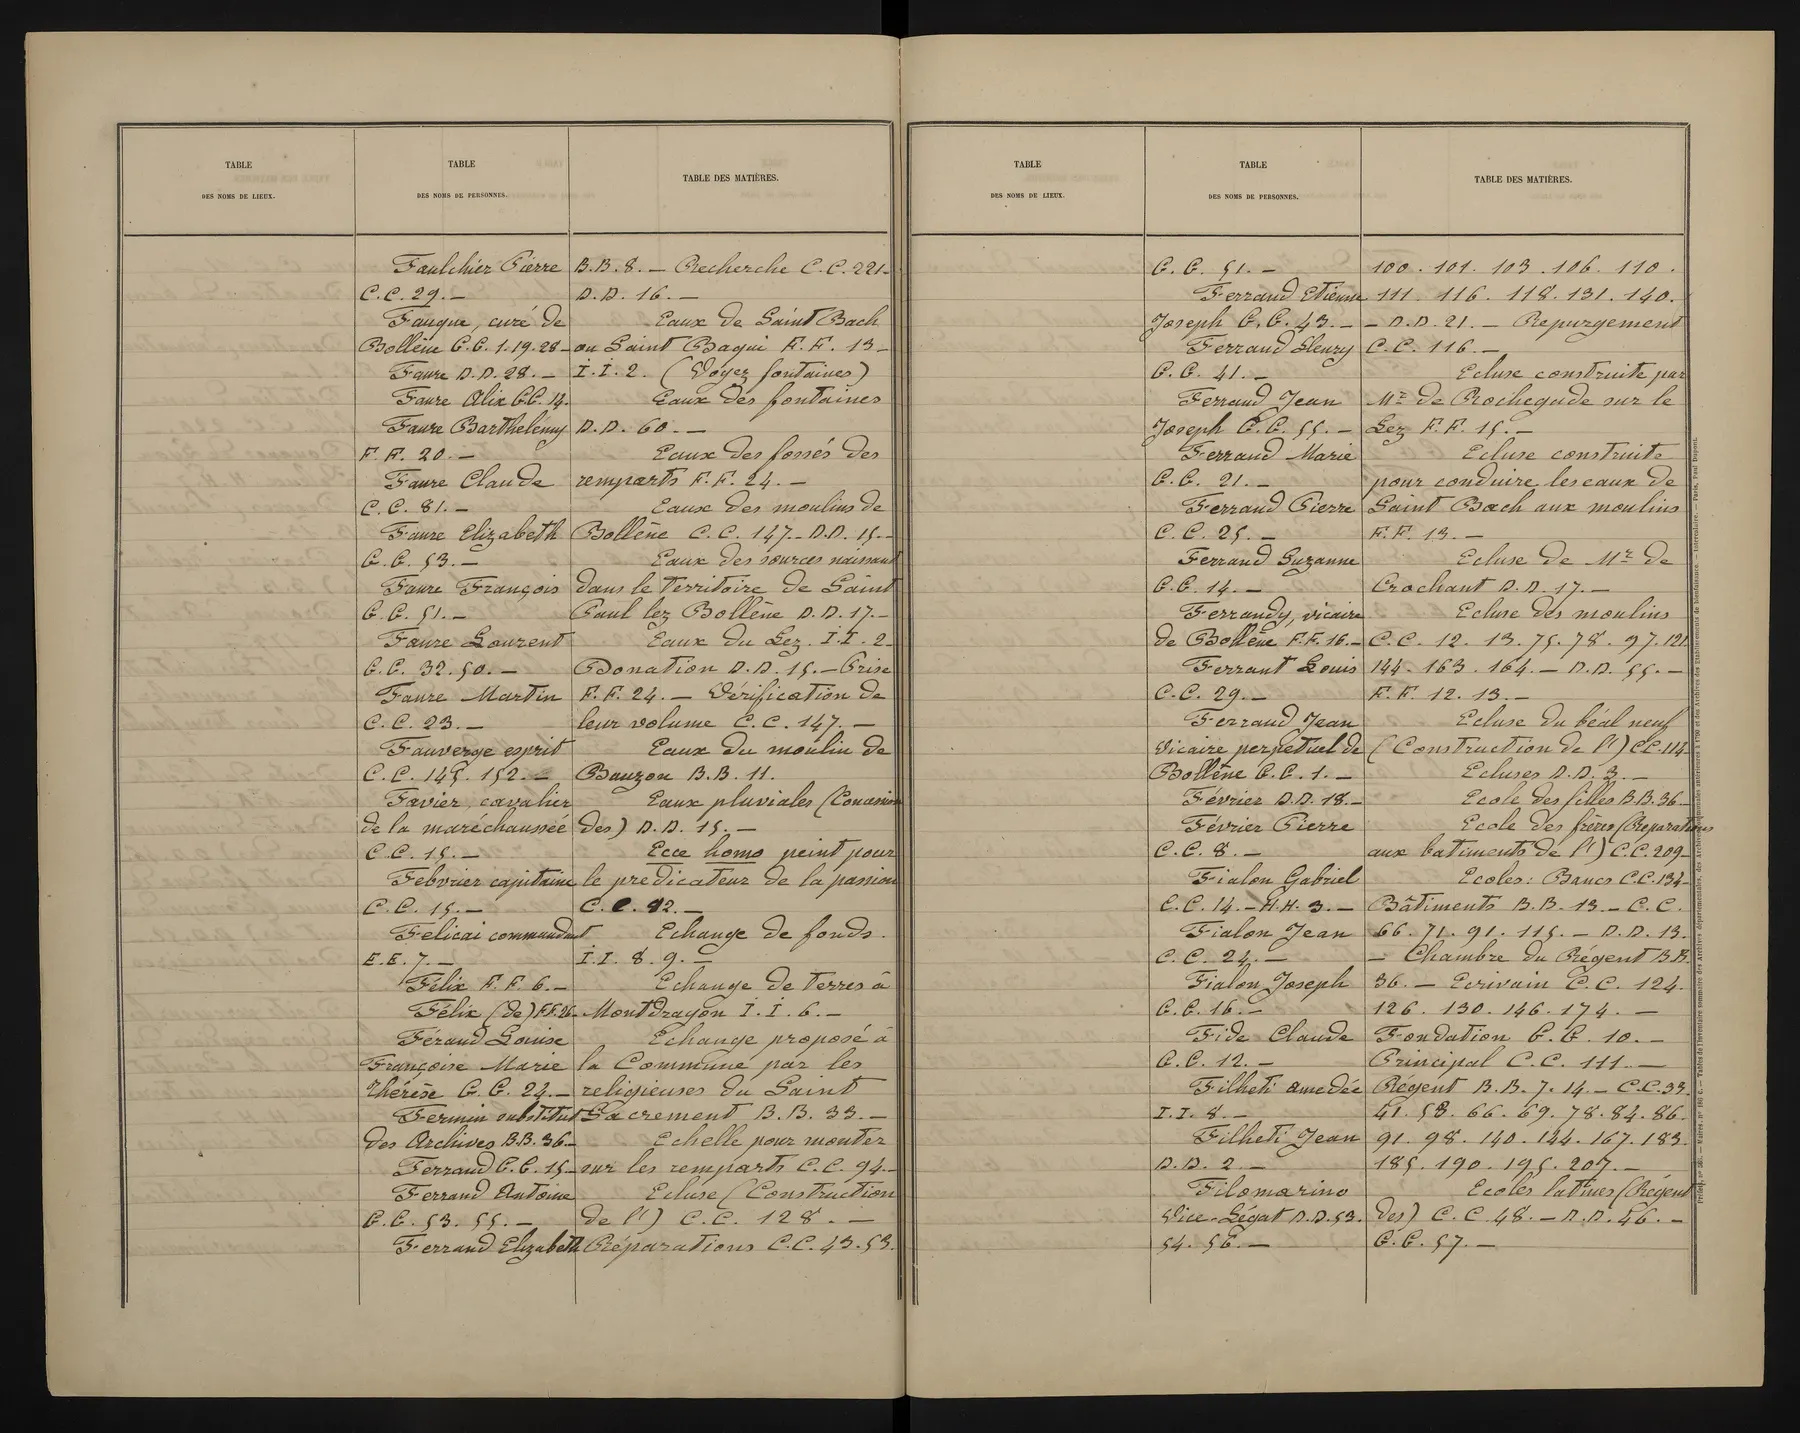 TABLE
DES NOMS DE LIEUX.
TABLE
DES NOMS DE PERSONNES.
TABLE DES MATIÈRES.
Faulchier Pierre
C.C. 29. —
Faugue, curé de
Bollène G.G. 1.19.28 —
Faure D.D. 28. —
Faure Alix G.G. 14.
Faure Barthelemy
F.F. 20. —
Faure Claude
C.C. 81. —
Faure Elizabeth
G.G. 53. —
Faure François
G.G. 51. —
Faure Laurent
G.G. 32. 50. —
Faure Martin
C.C. 23. —
Fauverge esprit
C.C. 145. 152. —
Favier, cavalier
de la maréchaussée
C.C. 15. —
Febvrier capitaine
C.C. 15. —
Félicai commandant
E.E. 7. —
Félix F.F. 6. —
Félix (de) F.F. 26 —
Féraud Louise
Françoise Marie
Thérèse G.G. 24. —
Fermin substitut
des Archives B.B. 36 —
Ferrand G.G. 15 —
Ferrand Antoine
G.G. 53. 55. —
Ferrand Elizabeth
B.B. 8. — Recherche C.C. 221 —
D.D. 16. —
Eaux de Saint Bach
ou Saint Baqui F.F. 13 —
I.I. 2. (Voyez fontaines)
Eaux des fontaines
D.D. 60. —
Eaux des fossés des
remparts F.F. 24. —
Eaux des moulins de
Bollène C.C. 147 — D.D. 15. —
Eaux des sources naissant
dans le territoire de Saint
Paul lez Bollène D.D. 17. —
Eaux du Lez. I.I. 2 —
Donation D.D. 15. — Prise
F.F. 24. — Vérification de
leur volume C.C. 147. —
Eaux du moulin de
Bauzon B.B. 11.
Eaux pluviales (Concession
des) D.D. 15. —
Ecce homo peint pour
le prédicateur de la passion
C.C. 92. —
Echange de fonds.
I.I. 8. 9. —
Echange de terres à
Montdragon I.I. 6. —
Echange proposé à
la Commune par les
religieuses du Saint
Sacrement B.B. 33. —
Echelle pour monter
sur les remparts C.C. 94. —
Ecluse (Construction
de l') C.C. 128. —
Réparations C.C. 43. 53.
TABLE
DES NOMS DE LIEUX.
TABLE
DES NOMS DE PERSONNES.
TABLE DES MATIÈRES.
G.G. 51. —
Ferrand Etienne
Joseph G.G. 43. —
Ferrand Fleury
G.G. 41. —
Ferrand Jean
Joseph G.G. 55. —
Ferrand Marie
G.G. 21. —
Ferrand Pierre
C.C. 25. —
Ferrand Suzanne
G.G. 14. —
Ferrandy, vicaire
de Bollène F.F. 16. —
Ferrant Louis
C.C. 29. —
Ferraud Jean
Vicaire perpetuel de
Bollène G.G. 1. —
Février D.D. 18. —
Février Pierre
C.C. 8. —
Fialon Gabriel
C.C. 14. — H.H. 3. —
Fialon Jean
C.C. 24. —
Fialon Joseph
G.G. 16. —
Fide Claude
G.G. 12. —
Filheti amedée
I.I. 8. —
Filheti Jean
D.D. 2. —
Filomarino
Vice-Légat D.D. 53.
54. 56. —
100. 101. 103. 106. 110.
111. 116. 118. 131. 140.
— D.D. 21. — Repurgement
C.C. 116. —
Ecluse construite par
Mr de Rochegude sur le
Lez F.F. 15. —
Ecluse construite
pour conduire les eaux de
Saint Bach aux moulins
F.F. 13. —
Ecluse de Mr de
Crochant D.D. 17. —
Ecluse des moulins
C.C. 12. 13. 75. 78. 97. 121
144. 163. 164. — D.D. 55. —
F.F. 12. 13. —
Ecluse du béal neuf
(Construction de l') C.C. 114
Ecluses D.D. 3. —
Ecole des filles B.B. 36 —
Ecole des frères (Réparations
aux batiments de l') C.C. 209 —
Ecoles: Bancs C.C. 134 —
Bâtiments B.B. 13 — C.C.
66. 71. 91. 115. — D.D. 13.
— Chambre du Régent B.B.
36. — Ecrivain C.C. 124.
126. 130. 146. 174. —
Fondation G.G. 10. —
Principal C.C. 111. —
Régent B.B. 7. 14. — C.C. 33.
41. 58. 66. 69. 78. 84. 86.
91. 98. 140. 144. 167. 183.
185. 190. 195. 207. —
Ecoles latines (Régent
des) C.C. 48. — D.D. 46. —
G.G. 57. —